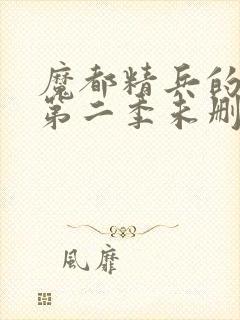 魔都精兵的
第二季未删
風靡